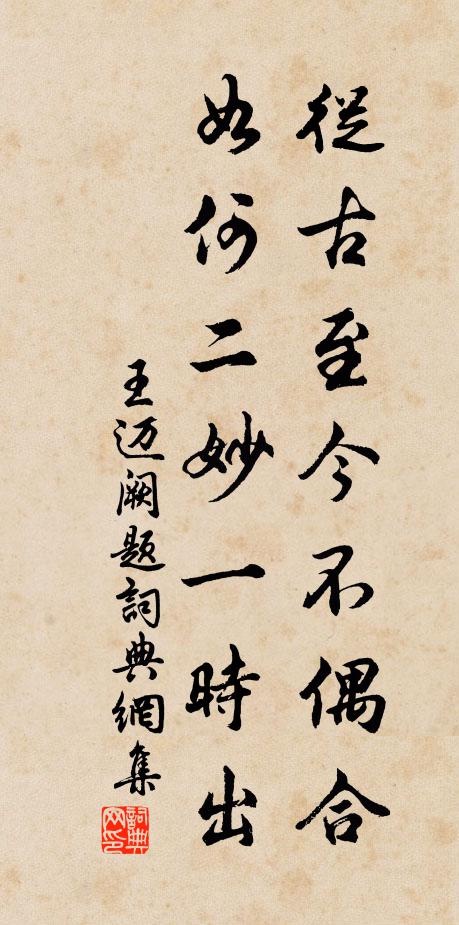 從古至今不偶合
如何二妙一時出
王迈阙题詞典網集
詞典网印